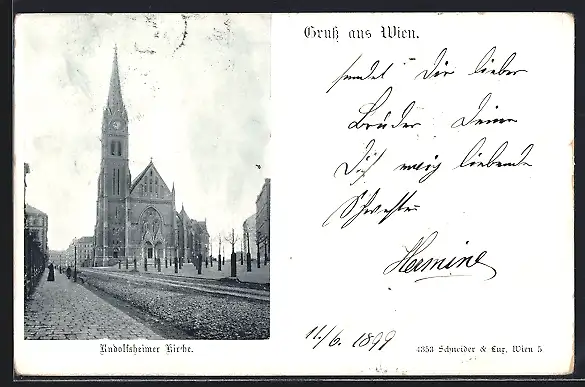 Gruß aus Wien.
sendet Dir lieber
Bruder Deine
Dich ewig liebende
Schwester
Hermine
11./6. 1899
Rudolfsheimer Kirche.
4353 Schneider & Lux, Wien 5